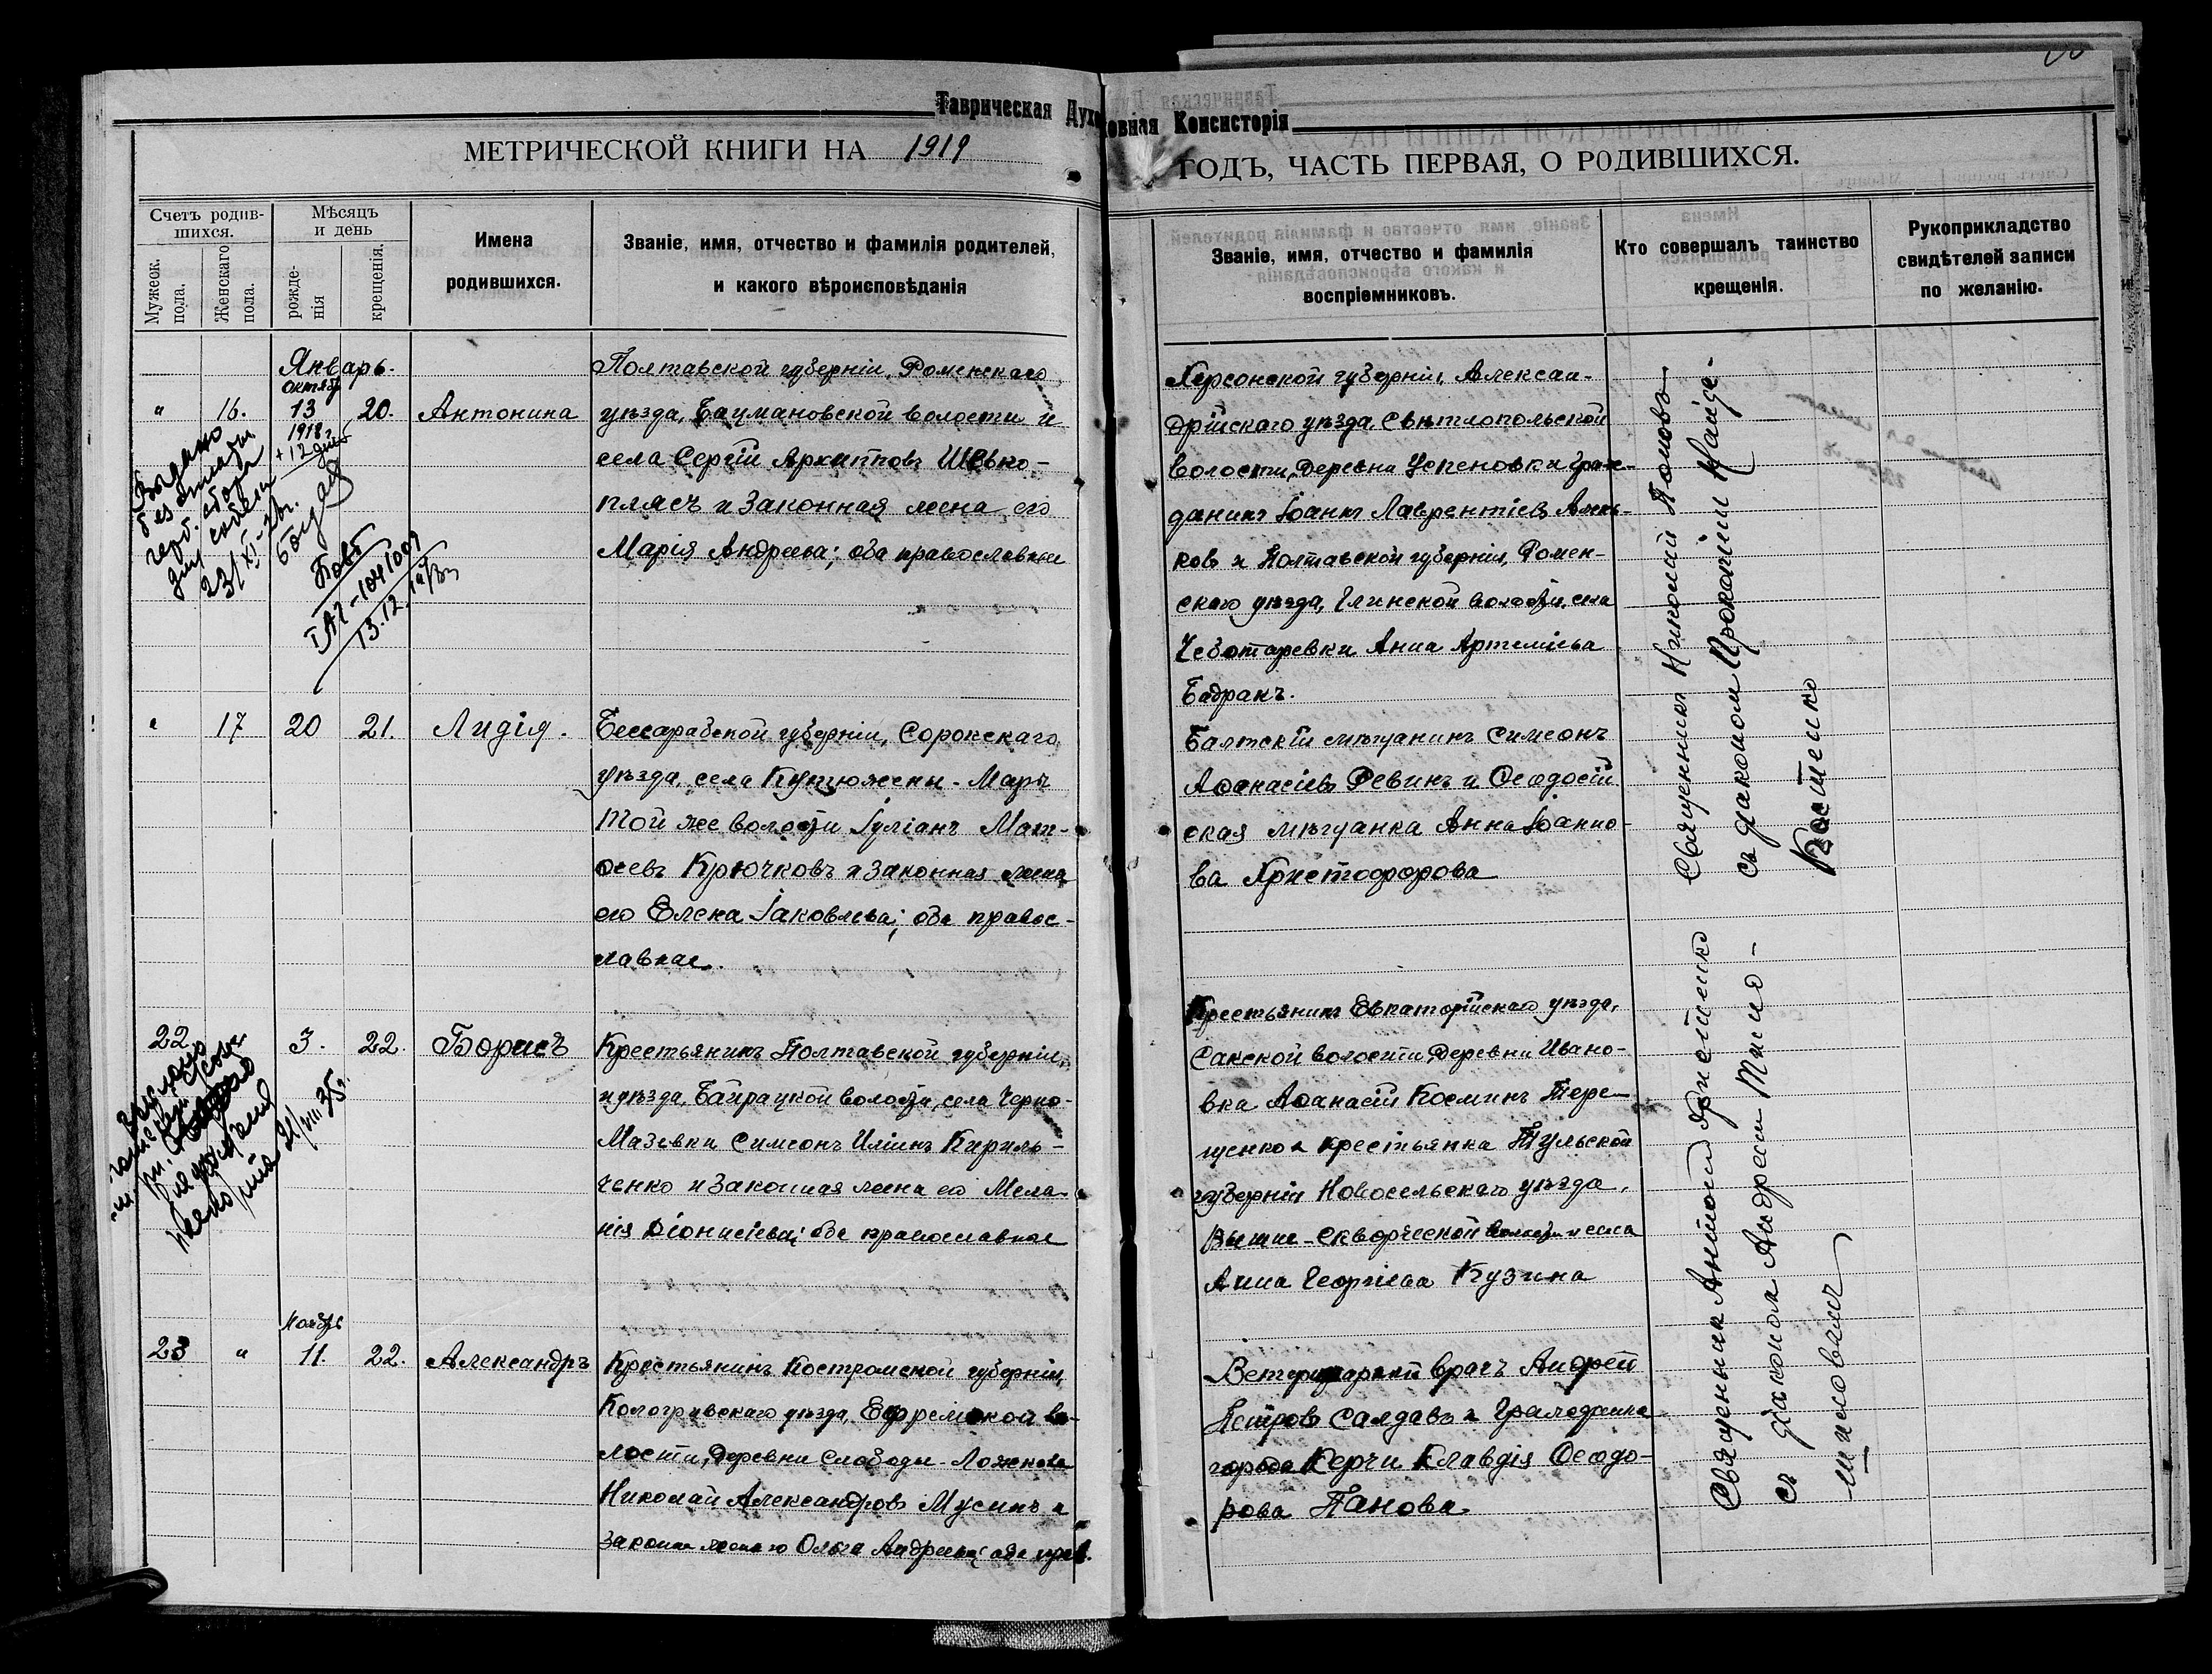 Таврическая Духовная Консисторія
МЕТРИЧЕСКОЙ КНИГИ НА 1919
ГОДЪ, ЧАСТЬ ПЕРВАЯ, О РОДИВШИХСЯ.
Счетъ родив-
шихся.
Мужеск.
пола.
Женскаго
пола.
Мѣсяцъ
и день
рожде-
нія
крещенія.
Имена
родившихся.
Званіе, имя, отчество и фамилія родителей,
и какого вѣроисповѣданія
Званіе, имя, отчество и фамилія
воспріемниковъ.
Кто совершалъ таинство
крещенія.
Рукоприкладство
свидѣтелей записи
по желанію.
Январь.
октябр
" 16. 13 20. Антонина
1918 г.
+ 12 дней
Выдано
без
герб. сбора
23/XI-
IАГ-
13.12.
Полтавской губерніи, Роменскаго
уѣзда, Бацмановской волости и
села Сергій Архиповъ Шевко-
плясъ и законная жена его
Марія Андреева; оба православные
Херсонской губерніи, Алексан-
дрійскаго уѣзда, Свѣтлопольской
волости, деревни Успеновка граж-
данинъ Іоаннъ Лаврентіев
ков и Полтавской губерніи, Ромен-
скаго уѣзда, Глинской волости, села
Чеботаревки Анна Артеміева
Бадракъ.
Священникъ Николай Поповъ
съ діакономъ Прокопіем Найде-
Костенко
" 17 20 21. Лидія.
Бессарабской губерніи, Сорокскаго
уѣзда, села Кушюжены-Маръ
той же волости Іуліанъ Мат-
ѳеевъ Крючковъ и законная жена
его Елена Іаковлева; оба правос-
лавные.
Балтскій мѣщанинъ Симеонъ
Аѳанасіевъ Ревинъ и Ѳеодосій
ская мѣщанка Анна Іоанно-
ва Христофорова
22 " 3. 22. Борисъ
31/VIII 35 г.
Крестьянинъ Полтавской губерніи,
и уѣзда, Байрацкой волости, села Черно-
Мазевки Симеонъ Иліинъ Кириль-
ченко и законная жена его Мела-
нія Діонисіева; оба православные
Крестьянинъ Евпаторійскаго уѣзда,
Сакской волости, деревни Ивано-
вка Аѳанасій Косминъ Тере-
щенко и крестьянка Тульской
губерніи Новосельскаго уѣзда,
Вышне-Скворческой волости и села
Анна Георгіева Кузина
Священникъ Антоній
съ діакона Андрея Тисле-
Ноябрь
23 " 11. 22. Александръ
Крестьянинъ Костромской губерніи,
Кологривскаго уѣзда, Ефремской во-
лости, деревни Слободы-Ложкова
Николай Александровъ Мусинъ и
законн жена его Ольга Андреева; оба прав.
Ветеринарный врачъ Андрей
Петровъ Салдавъ и Гражданка
города Керчи Клавдія Ѳеодо-
рова Панова